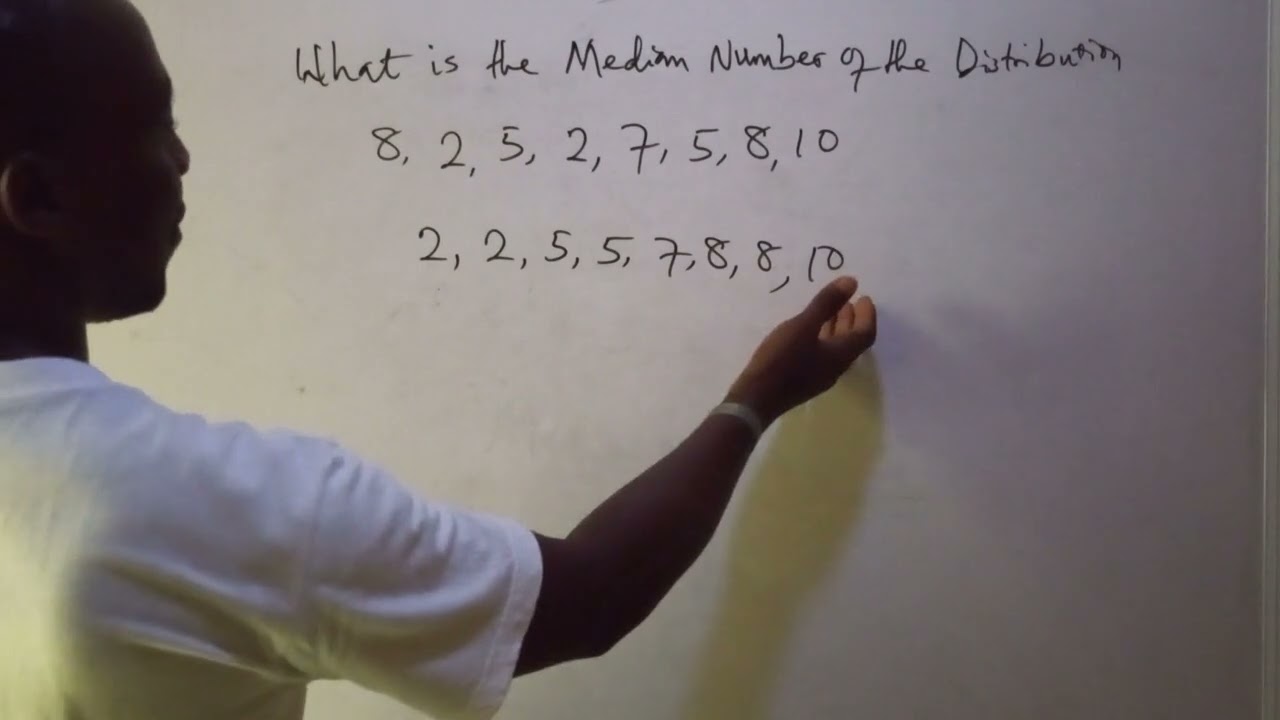 What is the Median Number of the Distribution
8, 2, 5, 2, 7, 5, 8, 10
2, 2, 5, 5, 7, 8, 8, 10